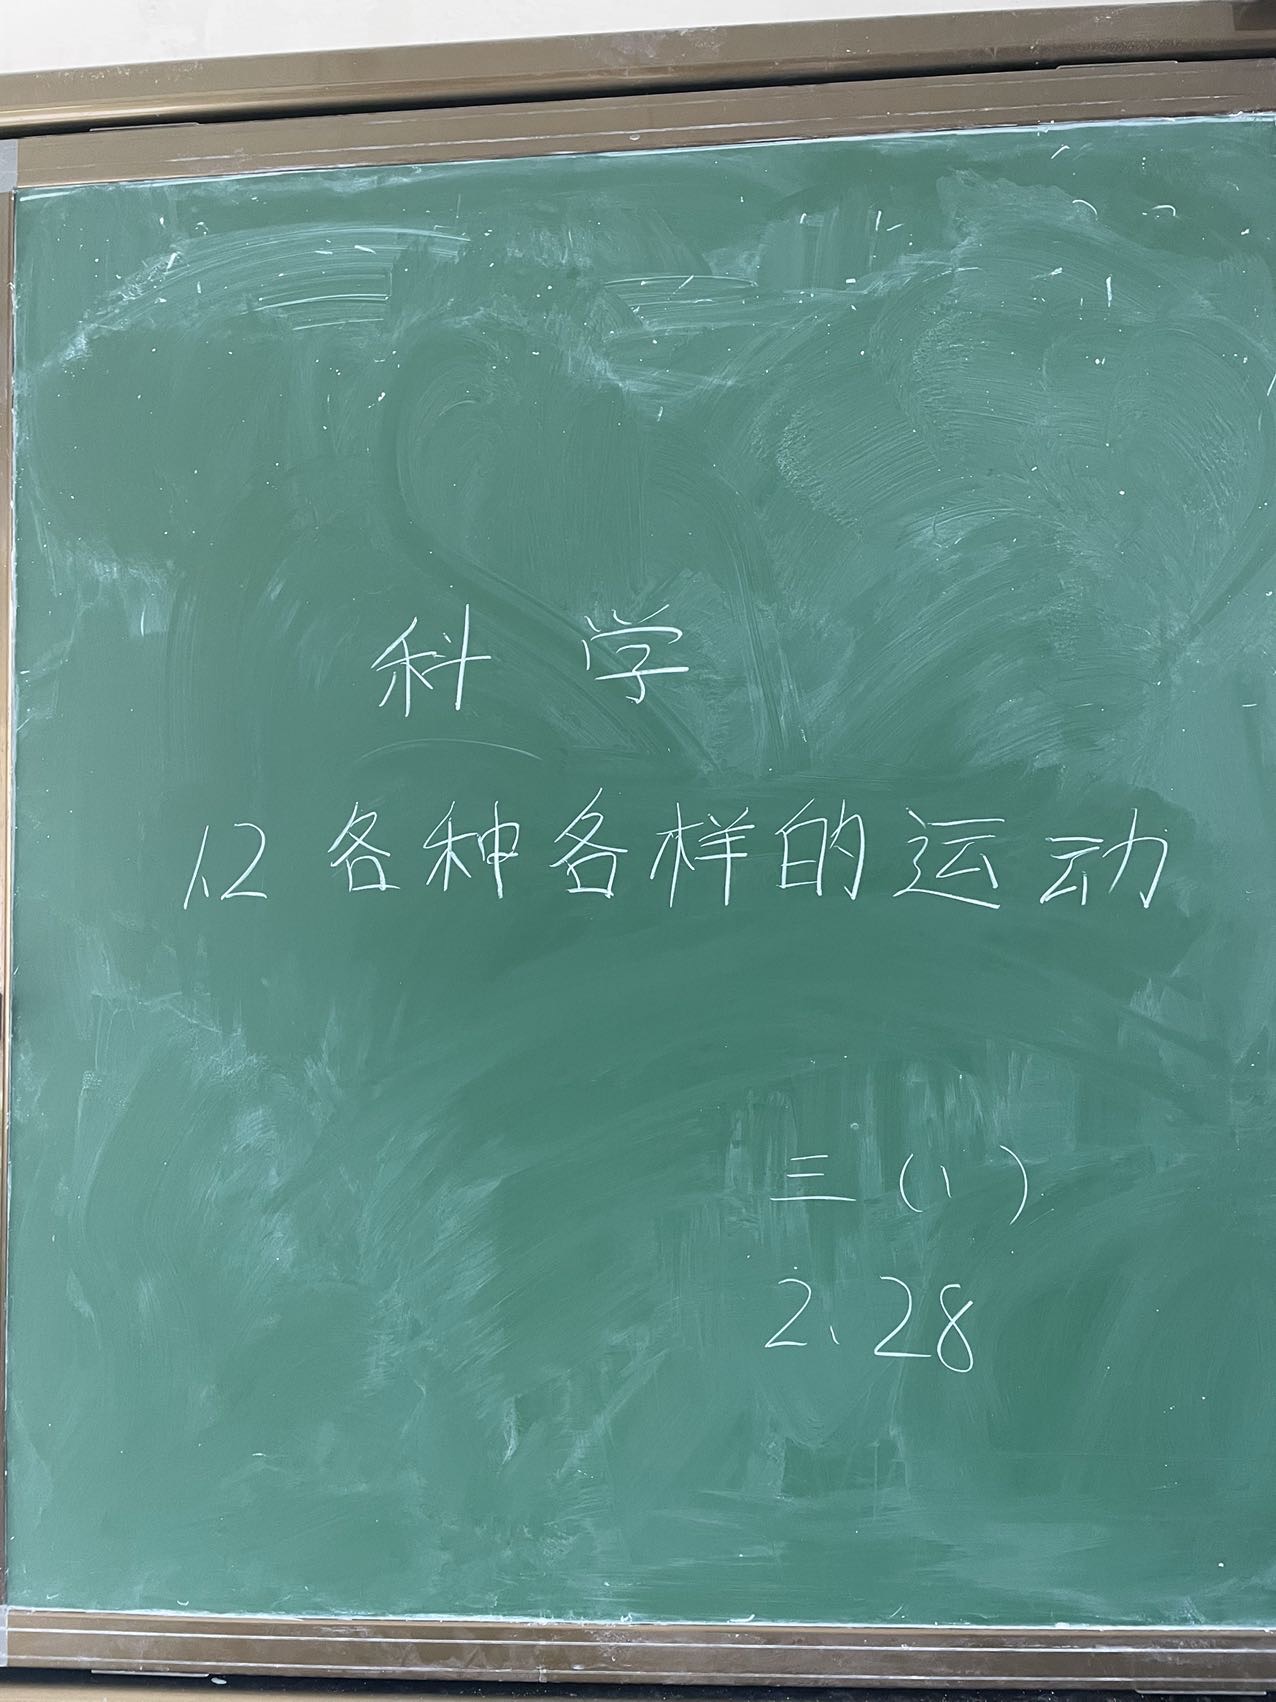 科学
1.2各种各样的运动
三(1)
2、28